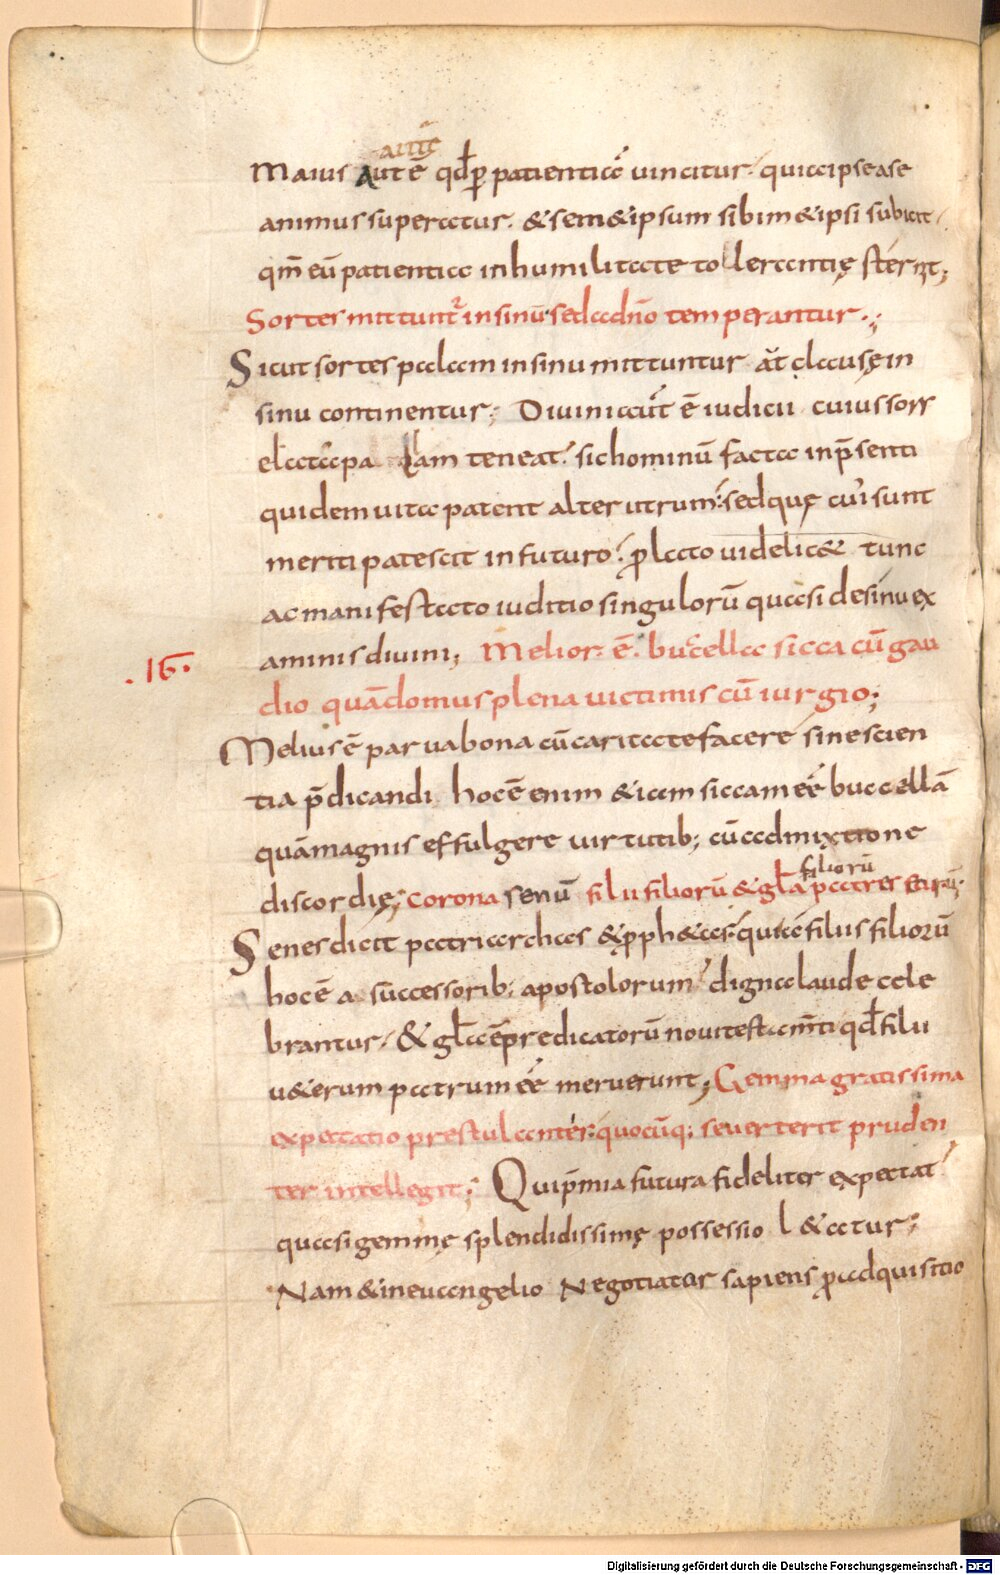 autē
Maius aut ē qđ ꝑ patientiā uincitur. quia ipse a se
animus superatur. & sem&ipsum sibim&ipsi subicit.
qm̄ eū patientia in humilitate tollerantię sternit;
Sortes mittunt᷑ in sinū sed a dn̄o temperantur.;
Sicut sortes palam in sinu mittuntur at clausę in
sinu continentur; Diuini aut ē iudicii cuius sors
elata palam teneat. sic hominū facta in p̄senti
quidem uita patent alterutrum. sed quę cui sunt
meriti patescit in futuro. prolato uidelic& tunc
ac manifestato iuditio singulorū quasi de sinu ex
aminis diuini; Melior. ē. buccella sicca cū gau
.16.
dio quā domus plena uictimis cū iurgio;
Melius ē parua bona cū caritate facere sine scien
tia p̄dicandi hoc ē enim &iam siccam eē buccellā
quā magnis effulgere uirtutib; cū admixtione
filiorū
discordię; Corona senū filii filiorū & gła patres eorū.
Senes dicit patriarchas & pph&as. quia ē filius filiorū
hoc ē a successorib; apostolorum digna laude cele
brantur. & gła ē predicatorū noui testam̄ti qđ filii
u&erum patrum eē meruerunt; Gemma gratissima
expectatio prestulantis. quocūq; se uerterit pruden
ter intellegit; Qui p̄mia futura fideliter expectat
quasi gemmę splendidissimę possessio l&atur;
Nam & in euangelio Negotiator sapiens pro adquisitio
Digitalisierung gefördert durch die Deutsche Forschungsgemeinschaft - DFG